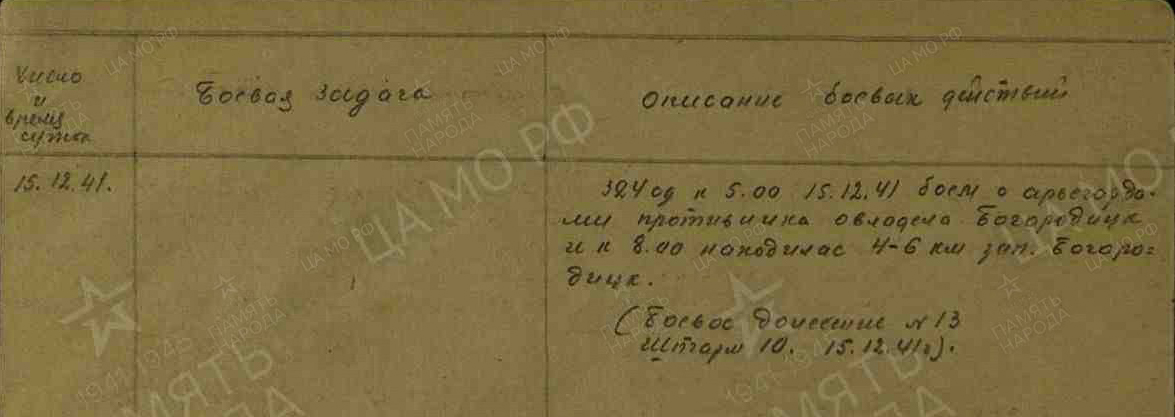 Число
и
время
суток
Боевая задача
Описание боевых действий
15.12.41.
324 сд к 5.00 15.12.41 боем с арьегарда-
ми противника овладела Богородицк
и к 8.00 находилас 4-6 км зап. Богоро=
дицк.
(Боевое донесение №13
Штарм 10. 15.12.41г).
ЦА МО РФ
ПАМЯТЬ
НАРОДА
1941-1945